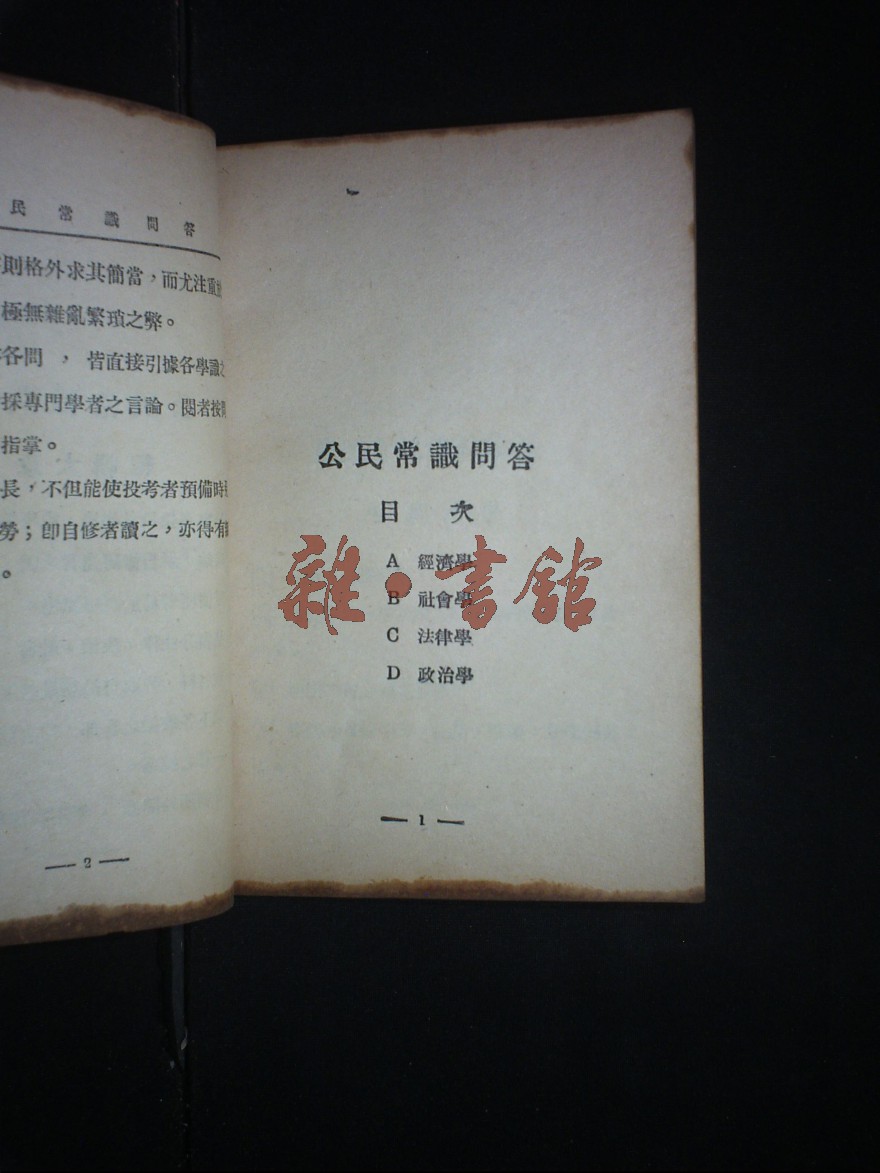 民常識問答
則格外求其簡當，而尤注重
極無雜亂繁瑣之弊。
各問，皆直接引據各學識之
採專門學者之言論。閱者按
指掌。
長，不但能使投考者預備時
勞；卽自修者讀之，亦得有
。
— 2 —
公民常識問答
目次
A 經濟學
B 社會學
C 法律學
D 政治學
雜·書館
— 1 —